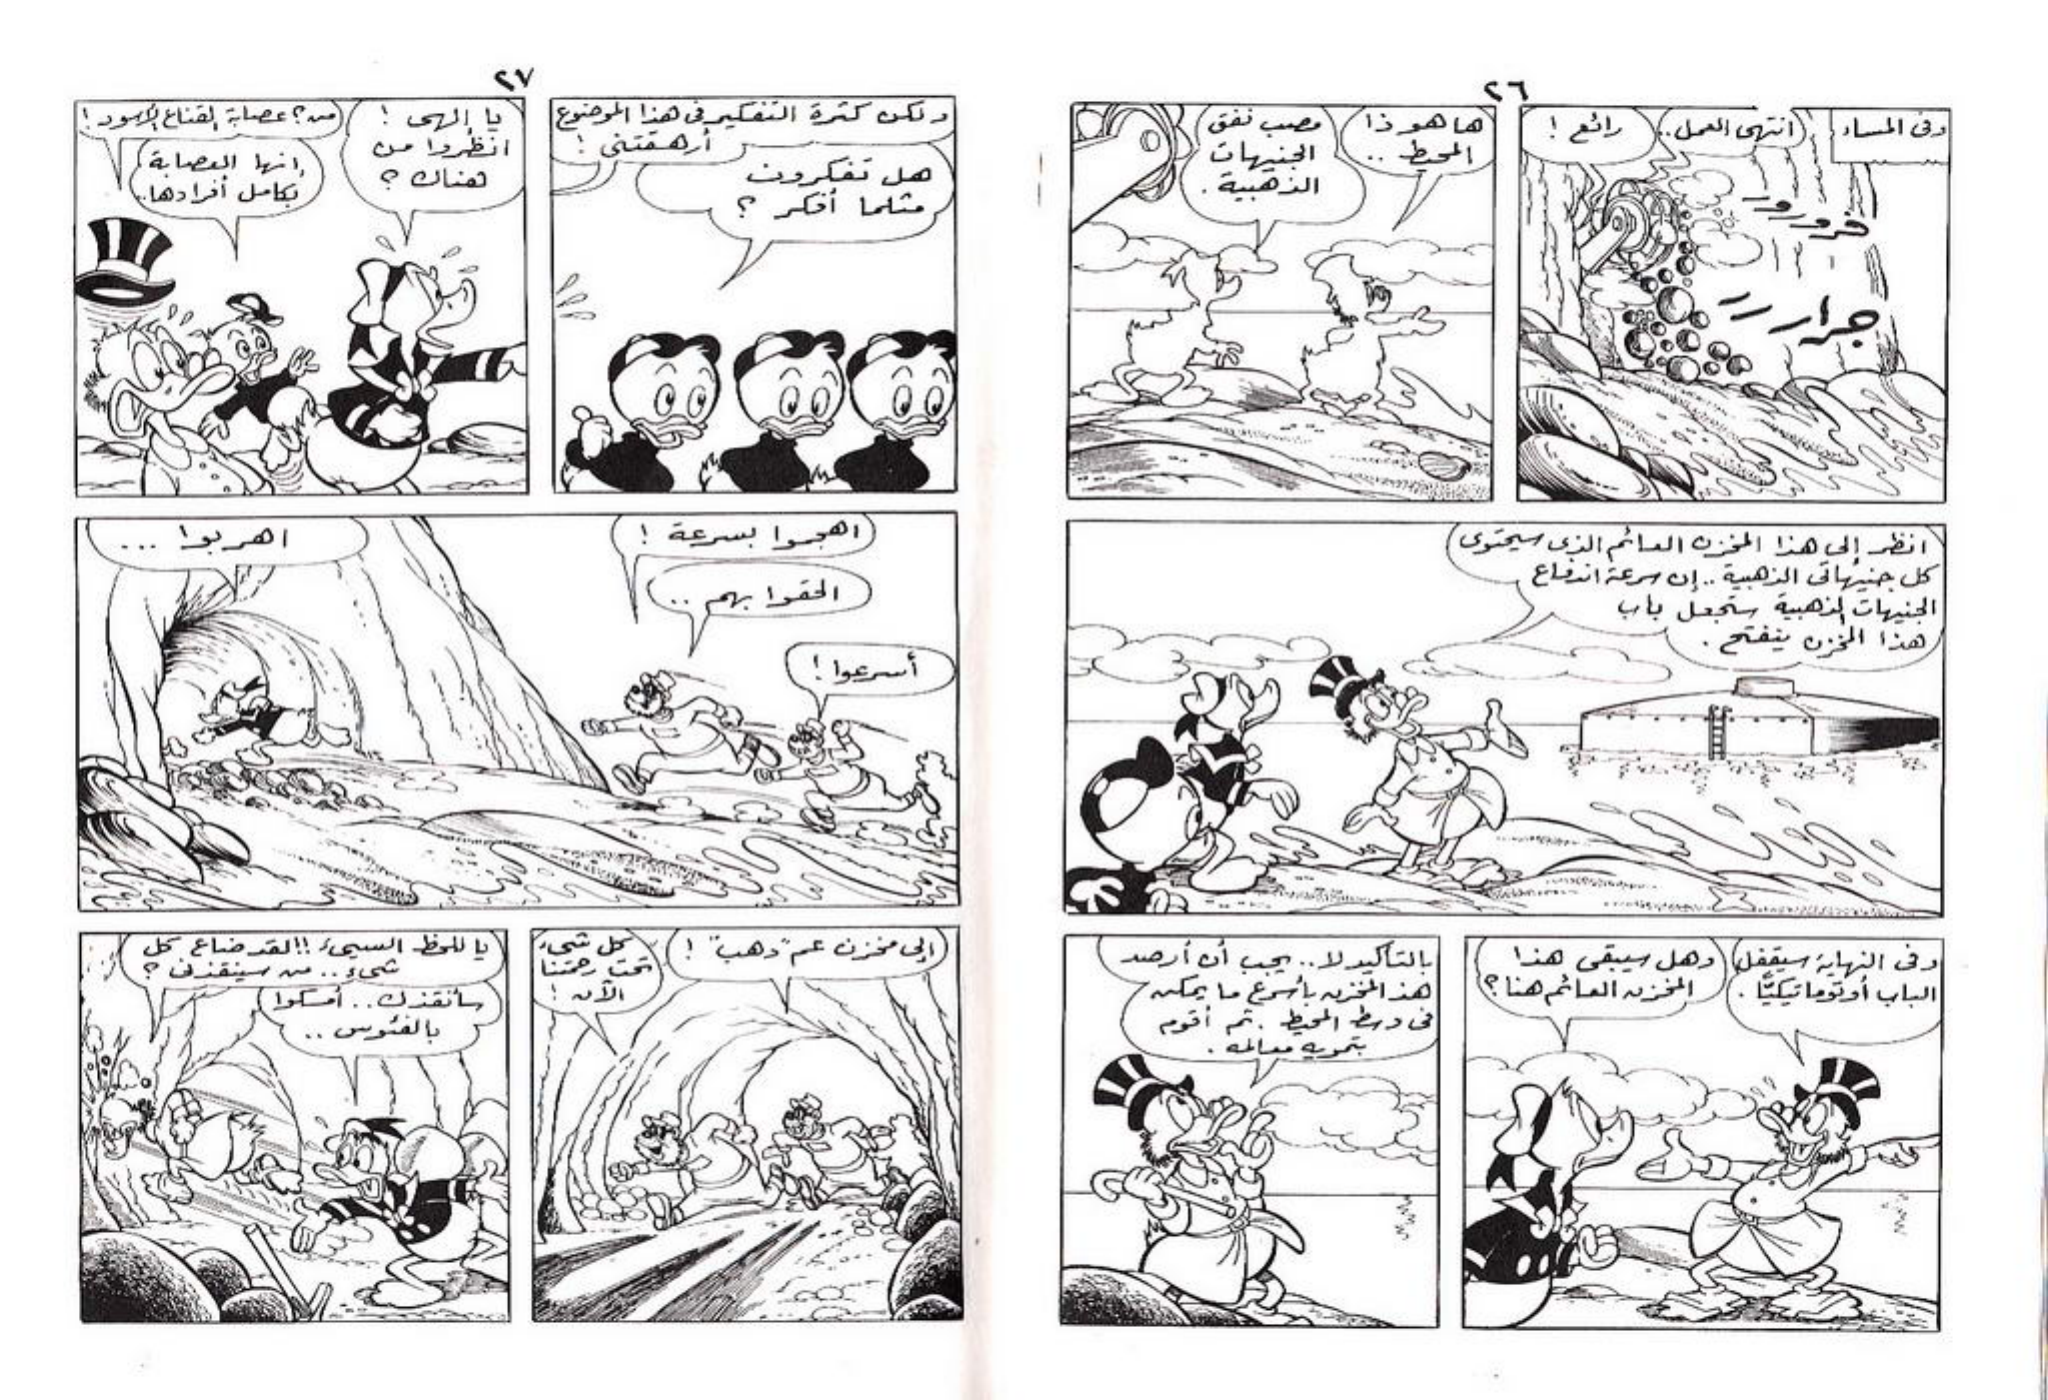 ٢٦
وفى المساء
انتهى العمل..
رائع !
فرورور
جرارررر
ها هو ذا
المحيط ..
مصب نفق
الجنيهات
الذهبية .
انظر إلى هذا المخزن العائم الذى سيحتوى
كل جنيهاتى الذهبية .. إن سرعة اندفاع
الجنيهات الذهبية ستجعل باب
هذا المخزن ينفتح .
وفى النهاية سيقفل
الباب أوتوماتيكيًّا .
وهل سيبقى هذا
المخزن العائم هنا ؟
بالتأكيد لا .. يجب أن أرصد
هذا المخزن بأسرع ما يمكن
فى وسط المحيط . ثم أقوم
بتمويه معالمه .
٢٧
ولكن كثرة التفكير فى هذا الموضوع
أرهقتنى !
هل تفكرون
مثلما أفكر ؟
يا إلهى !
انظروا من
هناك ؟
من ؟ عصابة القناع الأسود !
إنها العصابة
بكامل أفرادها..
اهجموا بسرعة !
الحقوا بهم ..
أسرعوا !
اهربوا ...
إلى مخزن عم "دهب" !
كل شىء
تحت رحمتنا
الآن !
يا للحظ السيىء !! لقد ضاع كل
شىء .. من سينقذنى ؟
سأنقذك .. أمسكوا
بالفئوس ..